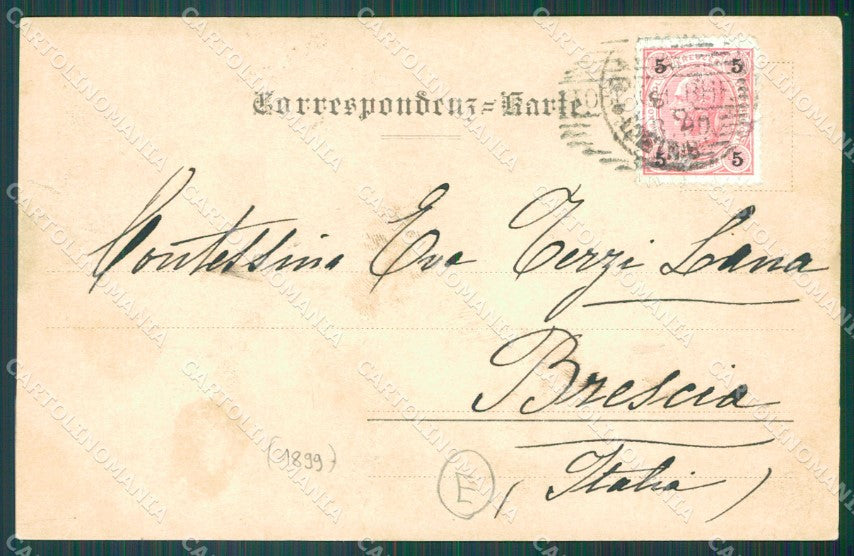 Correspondenz-Karte
5 5
5 5
Contessina Eva Terzi Lana
Brescia
(Italia)
(1899)
CARTOLINOMANIA